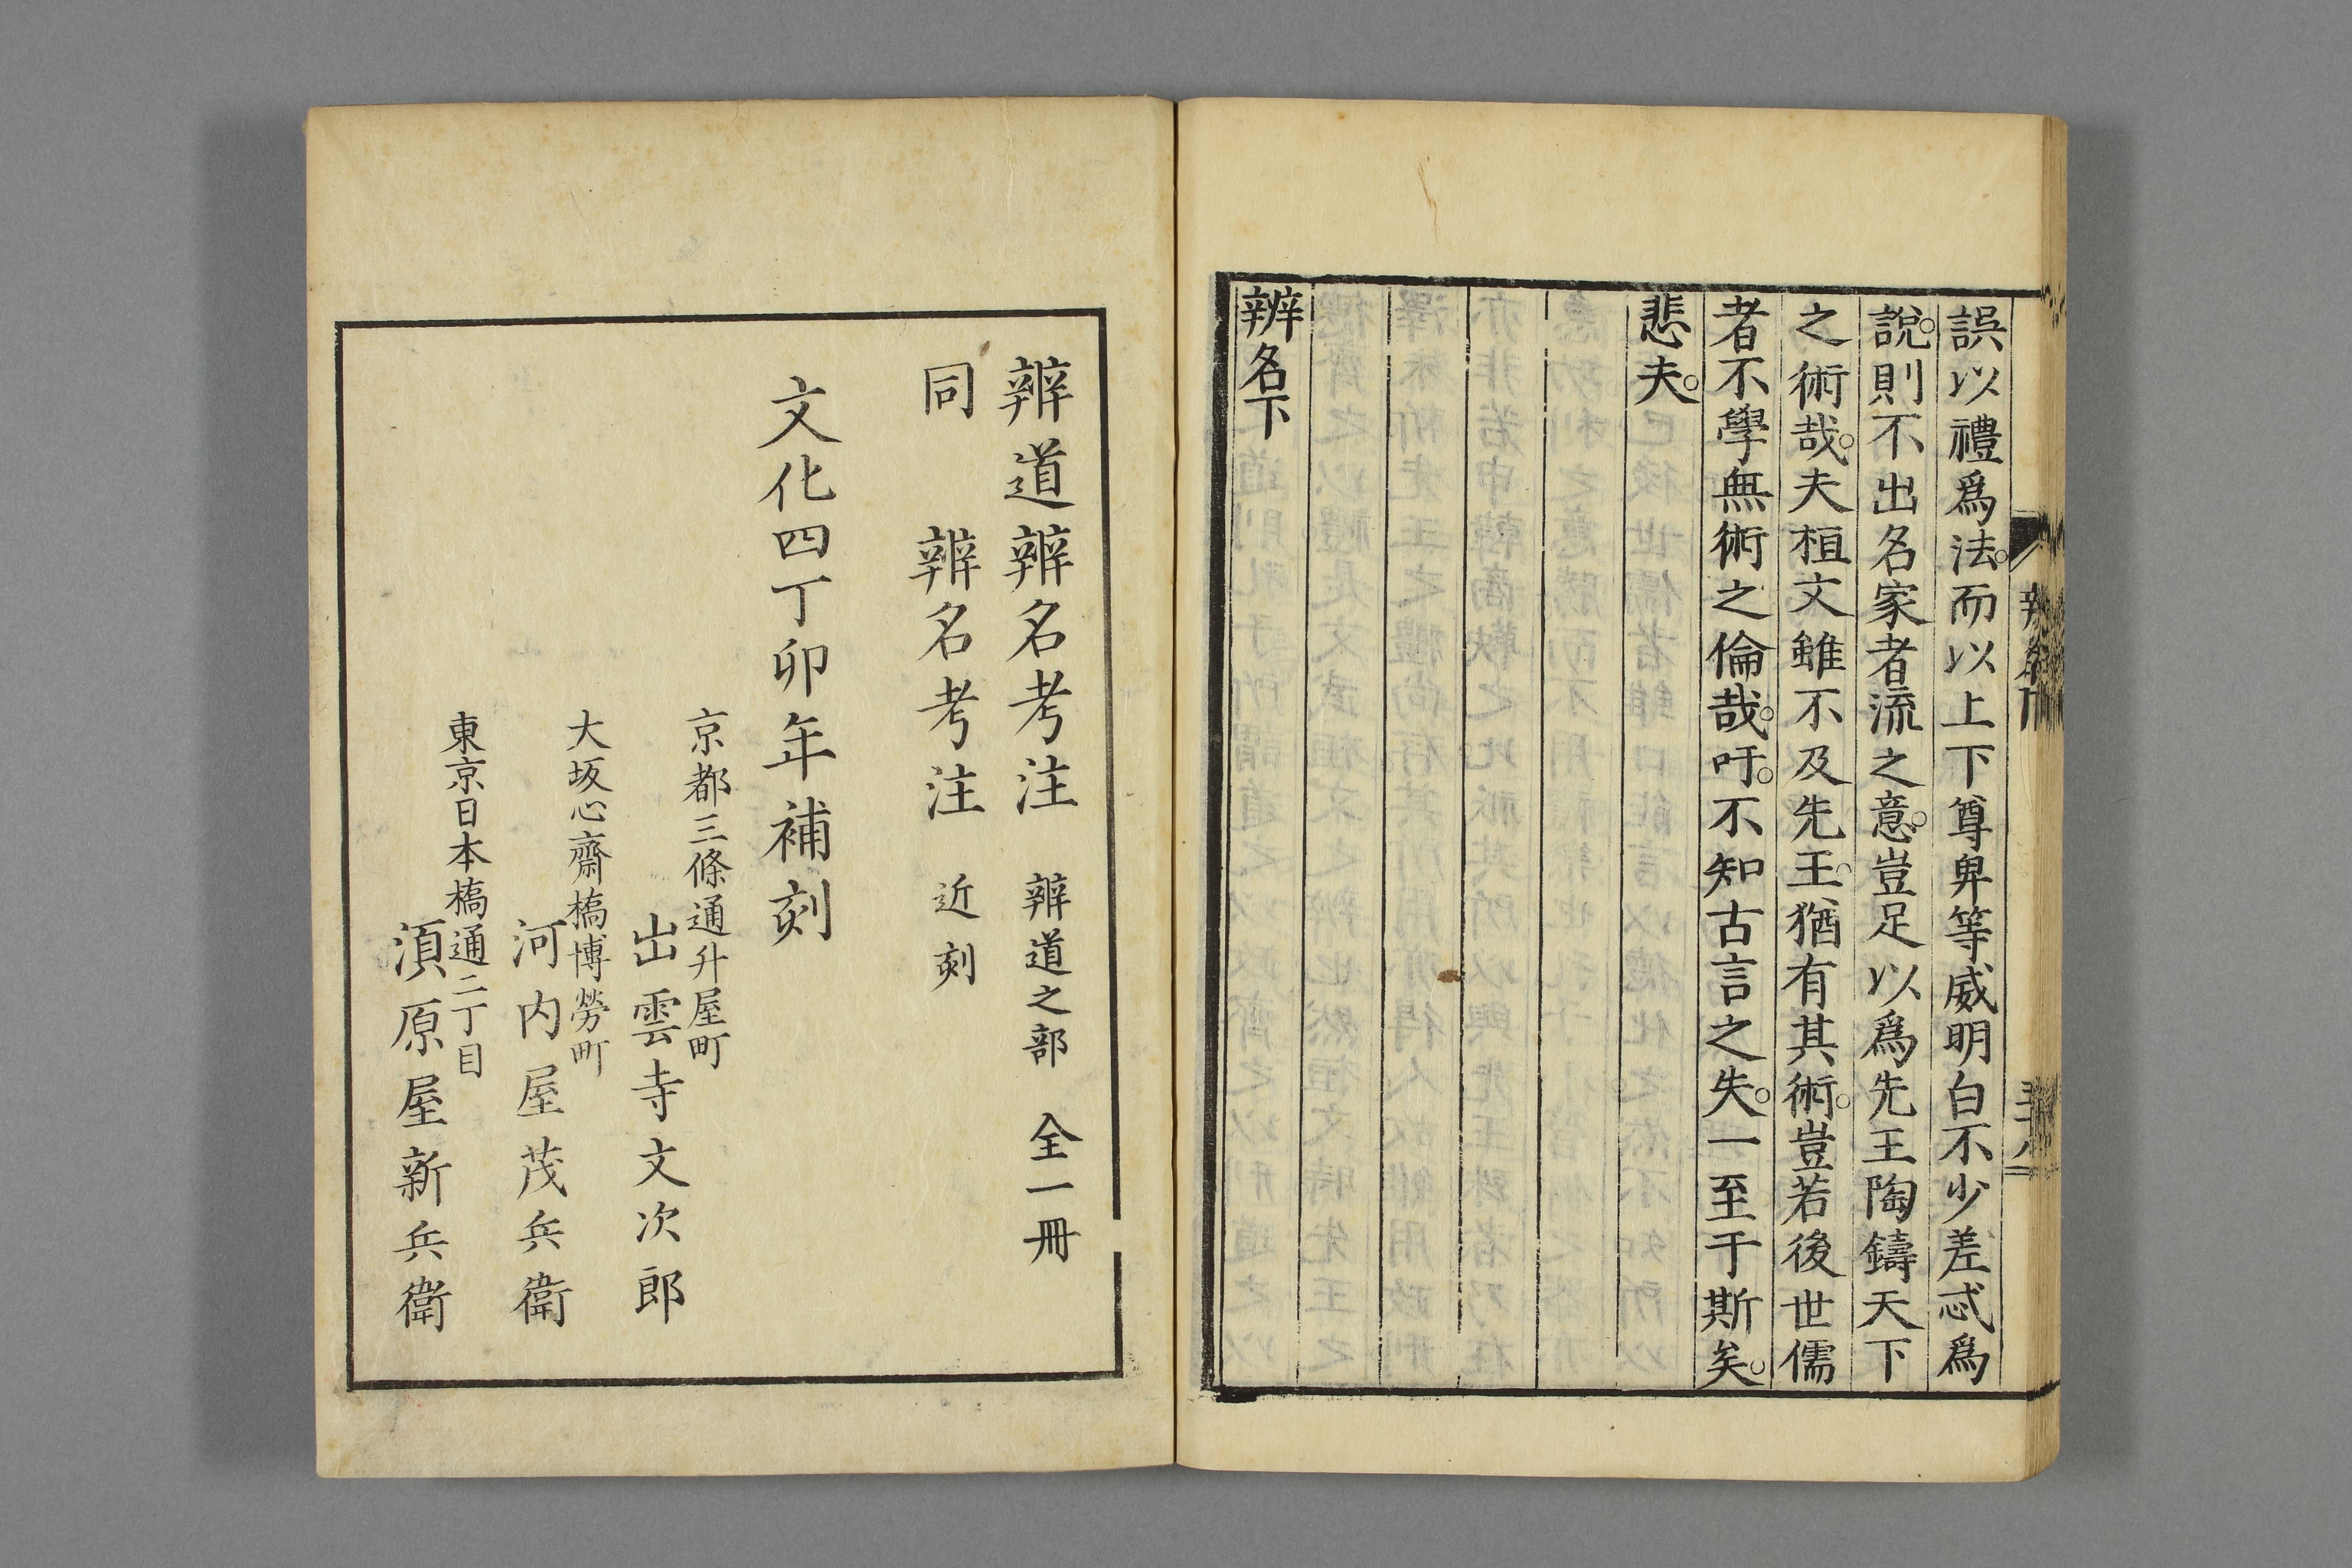 誤以禮爲法。而以上下尊卑等威明白不少差忒爲
說。則不出名家者流之意。豈足以爲先王陶鑄天下
之術哉。夫桓文雖不及先王。猶有其術。豈若後世儒
者不學無術之倫哉。吁。不知古言之失。一至于斯矣。
悲夫。
辨名下
辨道辨名考注 辨道之部 全一冊
同 辨名考注 近刻
文化四丁卯年補刻
京都三條通升屋町
出雲寺文次郎
大坂心齋橋博勞町
河内屋茂兵衞
東京日本橋通二丁目
須原屋新兵衞